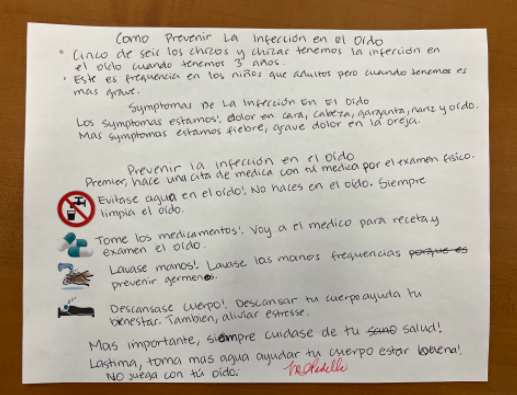 Como Prevenir La Infección en el Oído
• Cinco de seis los chicos y chicas tenemos la infección en
el oído cuando tenemos 3 años.
• Este es frequencia en los niños que adultos pero cuando tenemos es
mas grave.
Symptomas De La Infección En El Oído
Los symptomas estamos: dolor en cara, cabeza, garganta, nariz y oído.
Mas symptomas estamos fiebre, grave dolor en la oreja.
Prevenir la infección en el oído
Premier, hace una cita de medica con tú medica por el examen físico.
Evitase agua en el oído! No haces en el oído. Siempre
limpia el oído.
Tome los medicamentos! Voy a el medico para receta y
examen el oído.
Lavase manos! Lavase las manos frequencias porque es
prevenir germenes.
Descansase cuerpo! Descansar tu cuerpo ayuda tu
bienestar. Tambien, aliviar estresse.
Mas importante, siempre cuidase de tu sano salud!
Lastima, toma mas agua ayudar tu cuerpo estar buena!
No juega con tú oído.